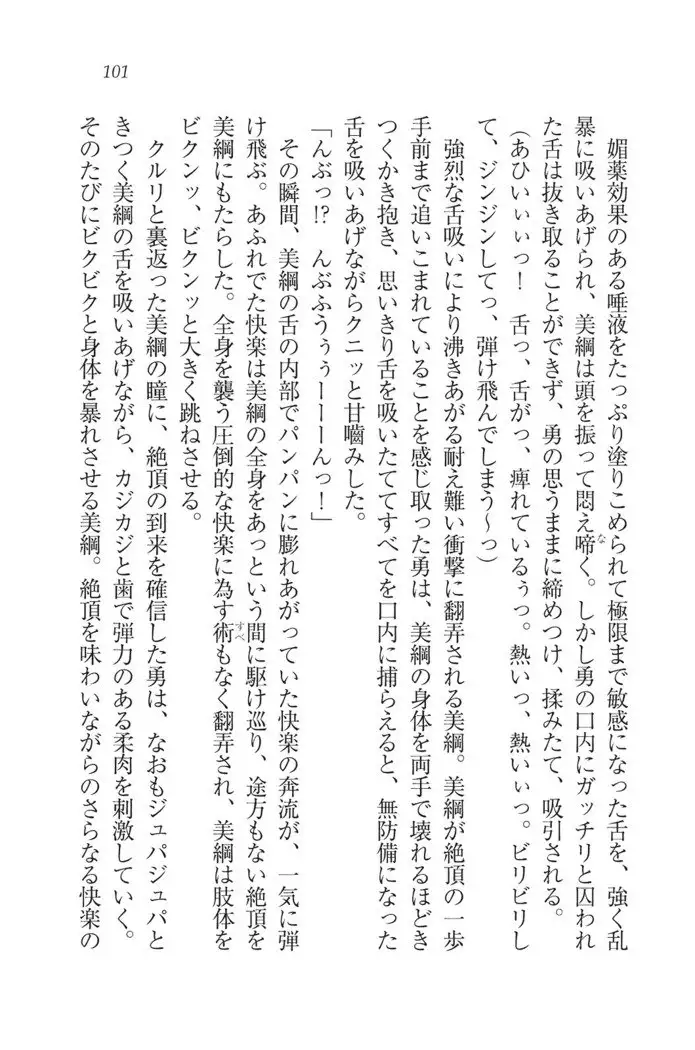 101
媚薬効果のある唾液をたっぷり塗りこめられて極限まで敏感になった舌を、強く乱
暴に吸いあげられ、美綱は頭を振って悶え啼く。しかし勇の口内にガッチリと囚われ
た舌は抜き取ることができず、勇の思うままに締めつけ、揉みたて、吸引される。
(あひいぃぃっ! 舌っ、舌がっ、痺れているぅっ。熱いっ、熱いぃっ。ビリビリし
て、ジンジンしてっ、弾け飛んでしまう〜っ)
強烈な舌吸いにより沸きあがる耐え難い衝撃に翻弄される美綱。美綱が絶頂の一歩
手前まで追いこまれていることを感じ取った勇は、美綱の身体を両手で壊れるほどき
つくかき抱き、思いきり舌を吸いたててすべてを口内に捕らえると、無防備になった
舌を吸いあげながらクニッと甘噛みした。
「んぶっ!? んぶふうぅぅーーーんっ!」
その瞬間、美綱の舌の内部でパンパンに膨れあがっていた快楽の奔流が、一気に弾
け飛ぶ。あふれでた快楽は美綱の全身をあっという間に駆け巡り、途方もない絶頂を
美綱にもたらした。全身を襲う圧倒的な快楽に為す術もなく翻弄され、美綱は肢体を
ビクンッ、ビクンッと大きく跳ねさせる。
クルリと裏返った美綱の瞳に、絶頂の到来を確信した勇は、なおもジュパジュパと
きつく美綱の舌を吸いあげながら、カジカジと歯で弾力のある柔肉を刺激していく。
そのたびにビクビクと身体を暴れさせる美綱。絶頂を味わいながらのさらなる快楽の